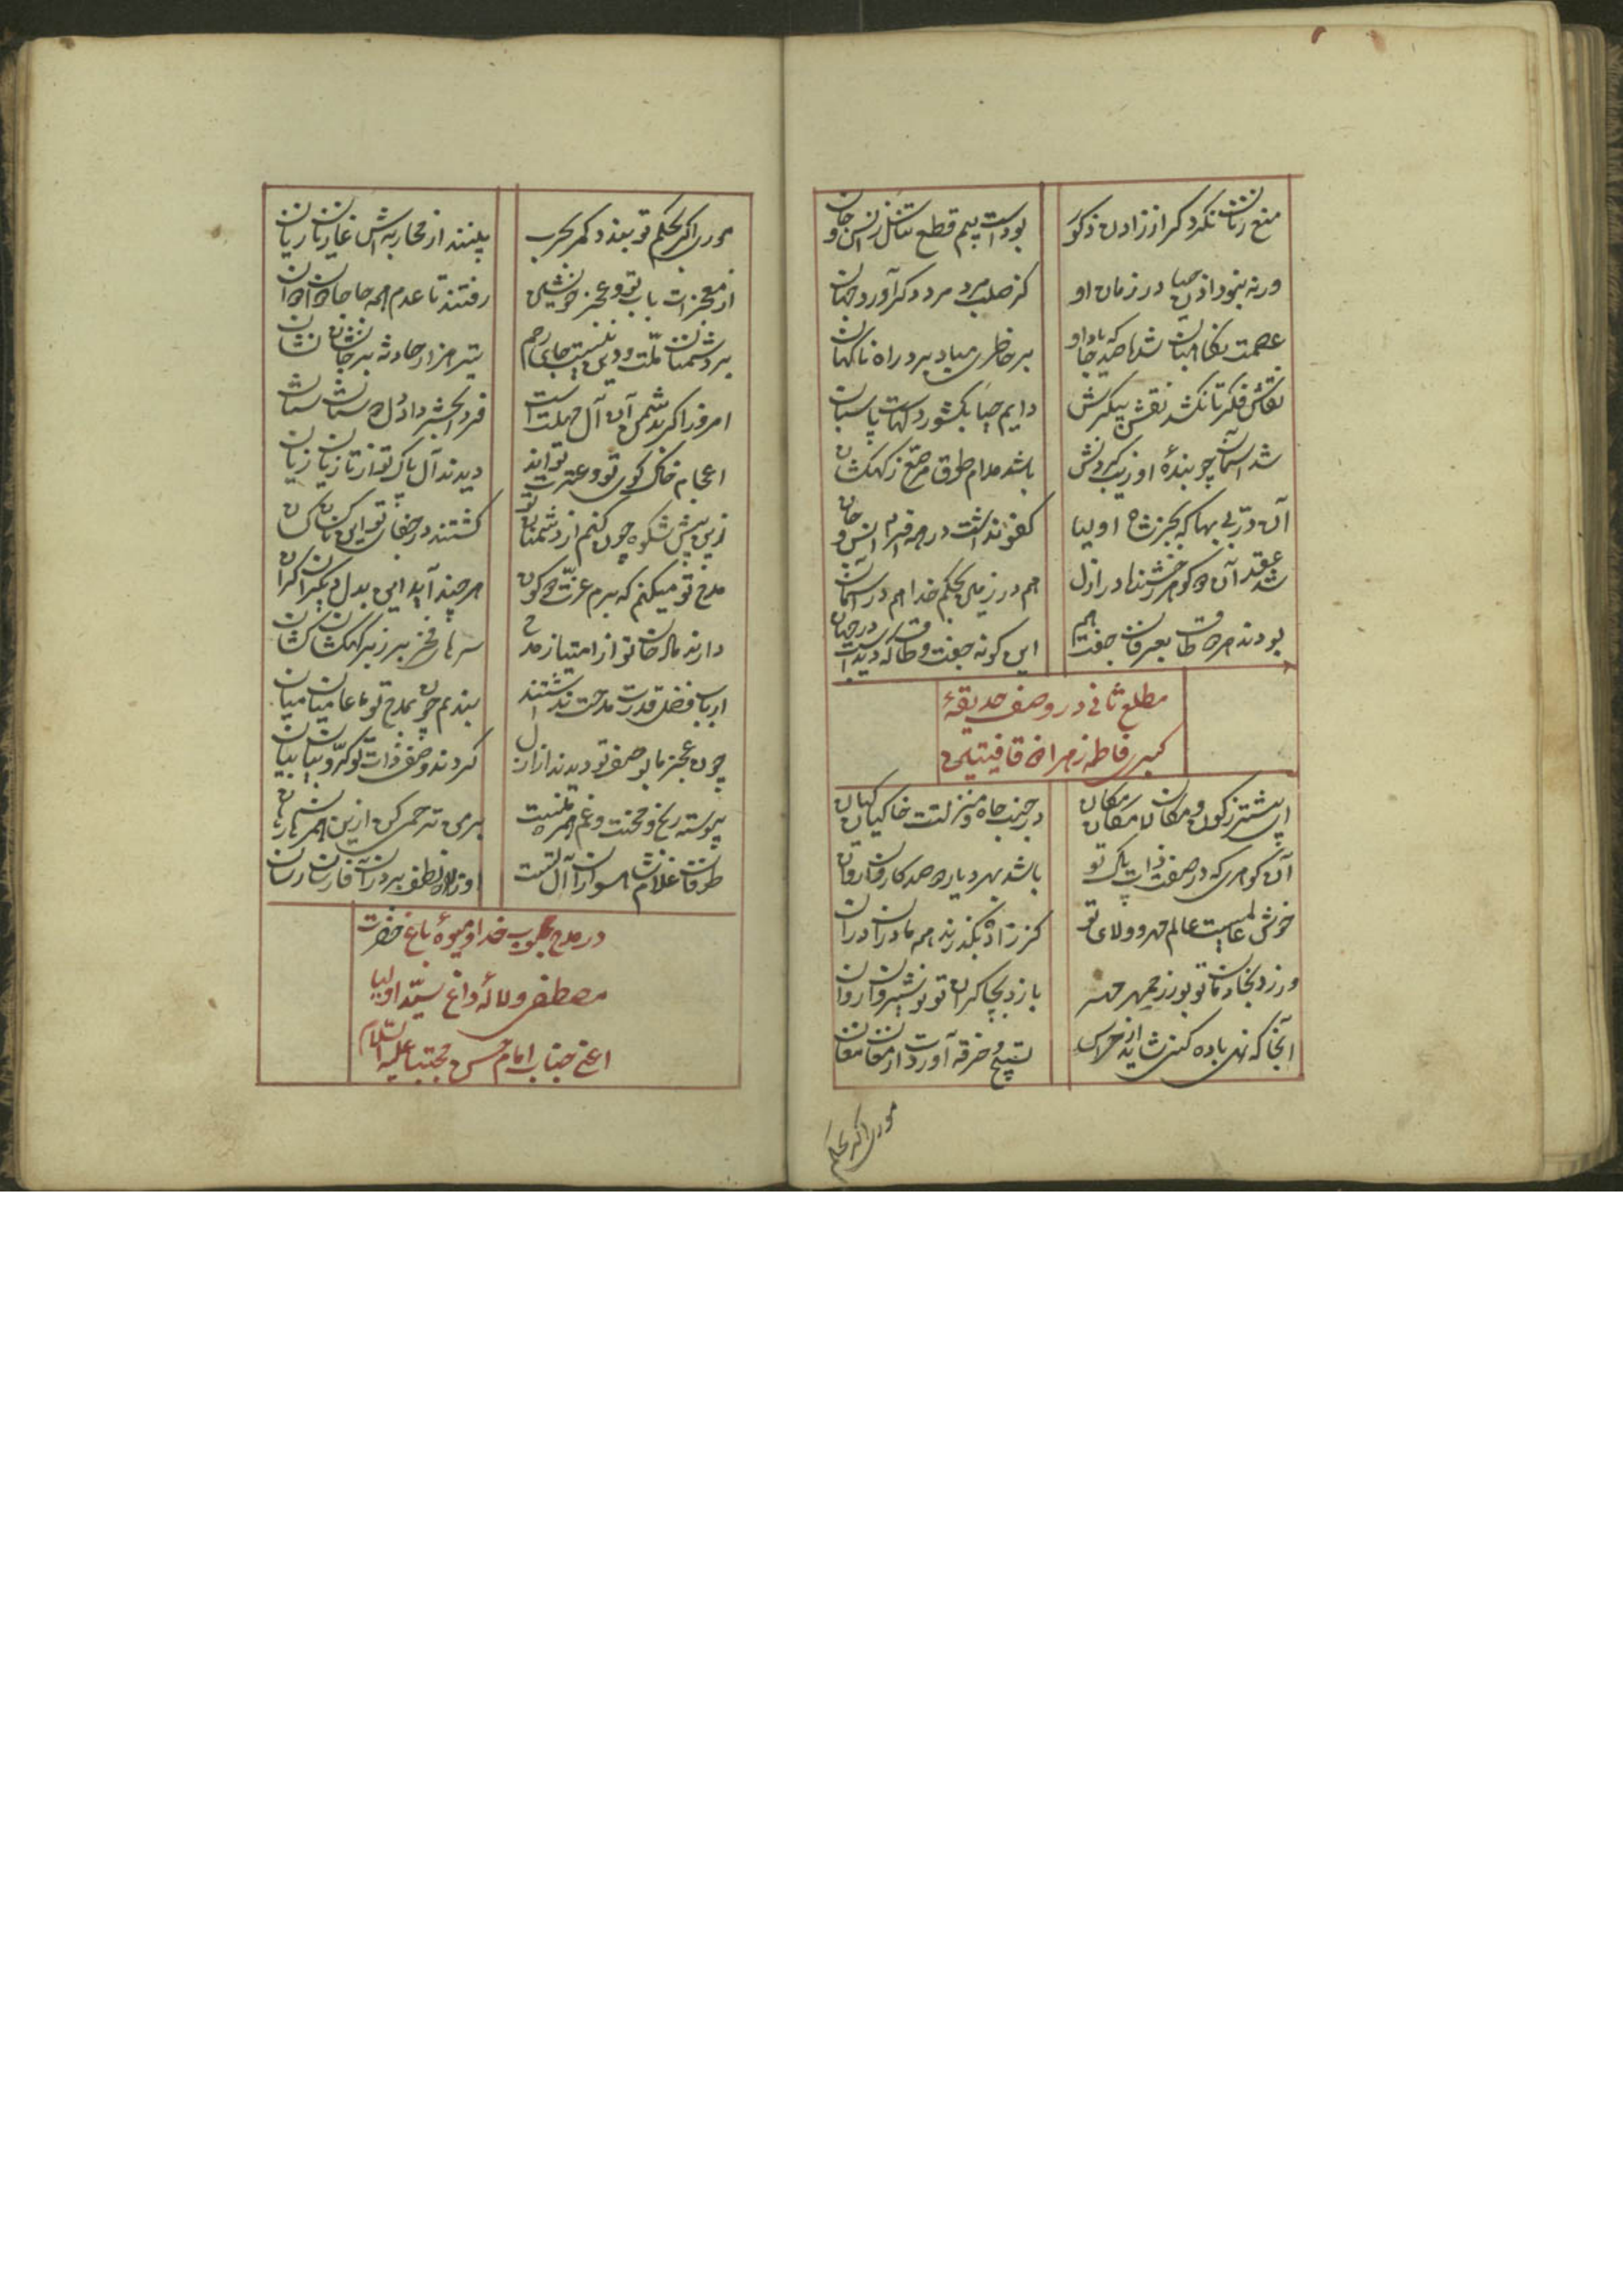 منع زنان نکرد گر از زادن ذکور
بوداست بیم قطع تناسل ز انس و جان
ورنه نبود اذن حیا در زمان او
کز صلب مرد مرد دگر آورد جهان
عصمت نگاهبان شده صد جا که یاد او
بر خاطری مباد برد راه ناگهان
نقاش فکر تا نکشد نقش پیکرش
دایم حیا بکشور دلهاست پاسبان
شد آسمان چو بندهٔ او زیب گردنش
باشد مدام طوق مرصع ز کهکشان
آن در بی بها که بجز شاه اولیا
کفوی نداشت در همه انس و جان
شد عقد آن دو گوهر رخشنده در ازل
هم در زمین بحکم خدا هم در آسمان
بودند هر دو طاق بعرفان جفت هم
این گونه جفت و طاق که دیده است در جهان
مطلع ثانی در وصف حدیقهٔ
کبری فاطمه زهرا ذو قافیتین
ای پیشتر ز کون و مکان لامکان مکان
در جنب جاه و منزلت خاکیان کیان
آن گوهری که در صفت ذات پاک تو
باشد بهر دیار دو صد کاروان روان
خوش عالمیست عالم مهر و ولای تو
کز زاده بگذرند همه مادران در آن
ورزد بخادمان تو بوزرجمهر مهر
بازد بچاکران تو نوشیروان روان
آنجا که نهی باده کنی شاید از هراس
تسبیح و خرقه آورد از مغان مغان
موری اگر بحکم
موری اگر بحکم تو بندد کمر بحرب
بینند از محاربه‌اش غازیان زیان
از معجزات باب تو و عجز خویشتن
رفتند تا عدم همه جادوان دوان
بر دشمنان ملت و دین نیست جای رحم
تیر هزار حادثه بر جانشان نشان
امروز اگر بدشمن آن آل مهلت است
فردا بحشر داد دل دوستان ستان
اعجام خاک کوی تو و عترت تواند
دیدند آل پاک تو از تازیان زیان
زین بیش شکوه چون کنم از دشمنان تو
گشتند در جفای تو این ناکسان کسان
مدح تو میکنم که برم عزت دو کون
هر چند آید این بدل دیگران گران
دارند مدح خوان تو از امتیاز مدح
سرهای فخر بر زبر کهکشان کشان
ارباب فضل قدرت مدحت نداشتند
بندم چو من بمدح تو با عامیان میان
چون عجز ما بوصف تو دیدند از ازل
کردند وصف ذات تو کروبیان بیان
پیوسته رنج و محنت و غم همره منست
برمن ترحم کن ازین همرهان رهان
طوفان غلام شاه‌سواران آل تست
او را ز راه لطف بر آن فارسان رسان
در مدح محبوب خدا و میوهٔ باغ حضرت
مصطفی و لالهٔ داغ سید اولیا
اعنی جناب امام حسن مجتبی علیه السلام